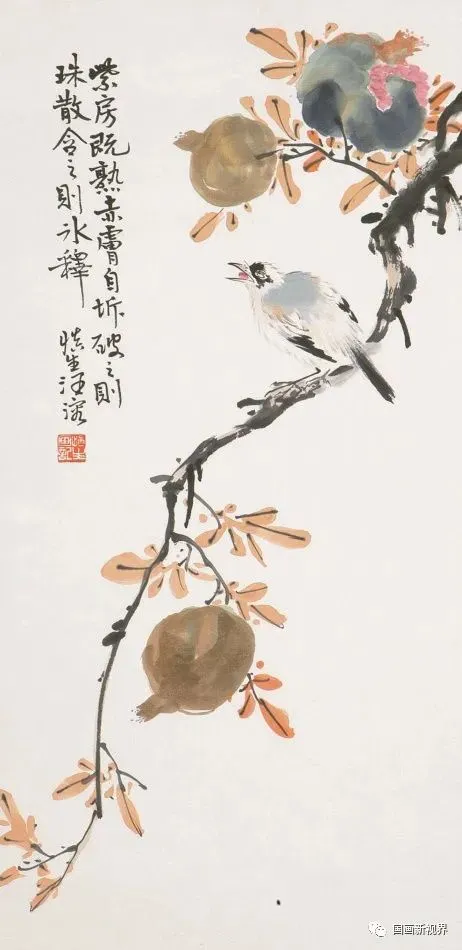 紫房既熟赤膚自坼破之則
珠散含之則氷釋
慎生汪溶
国画新视界